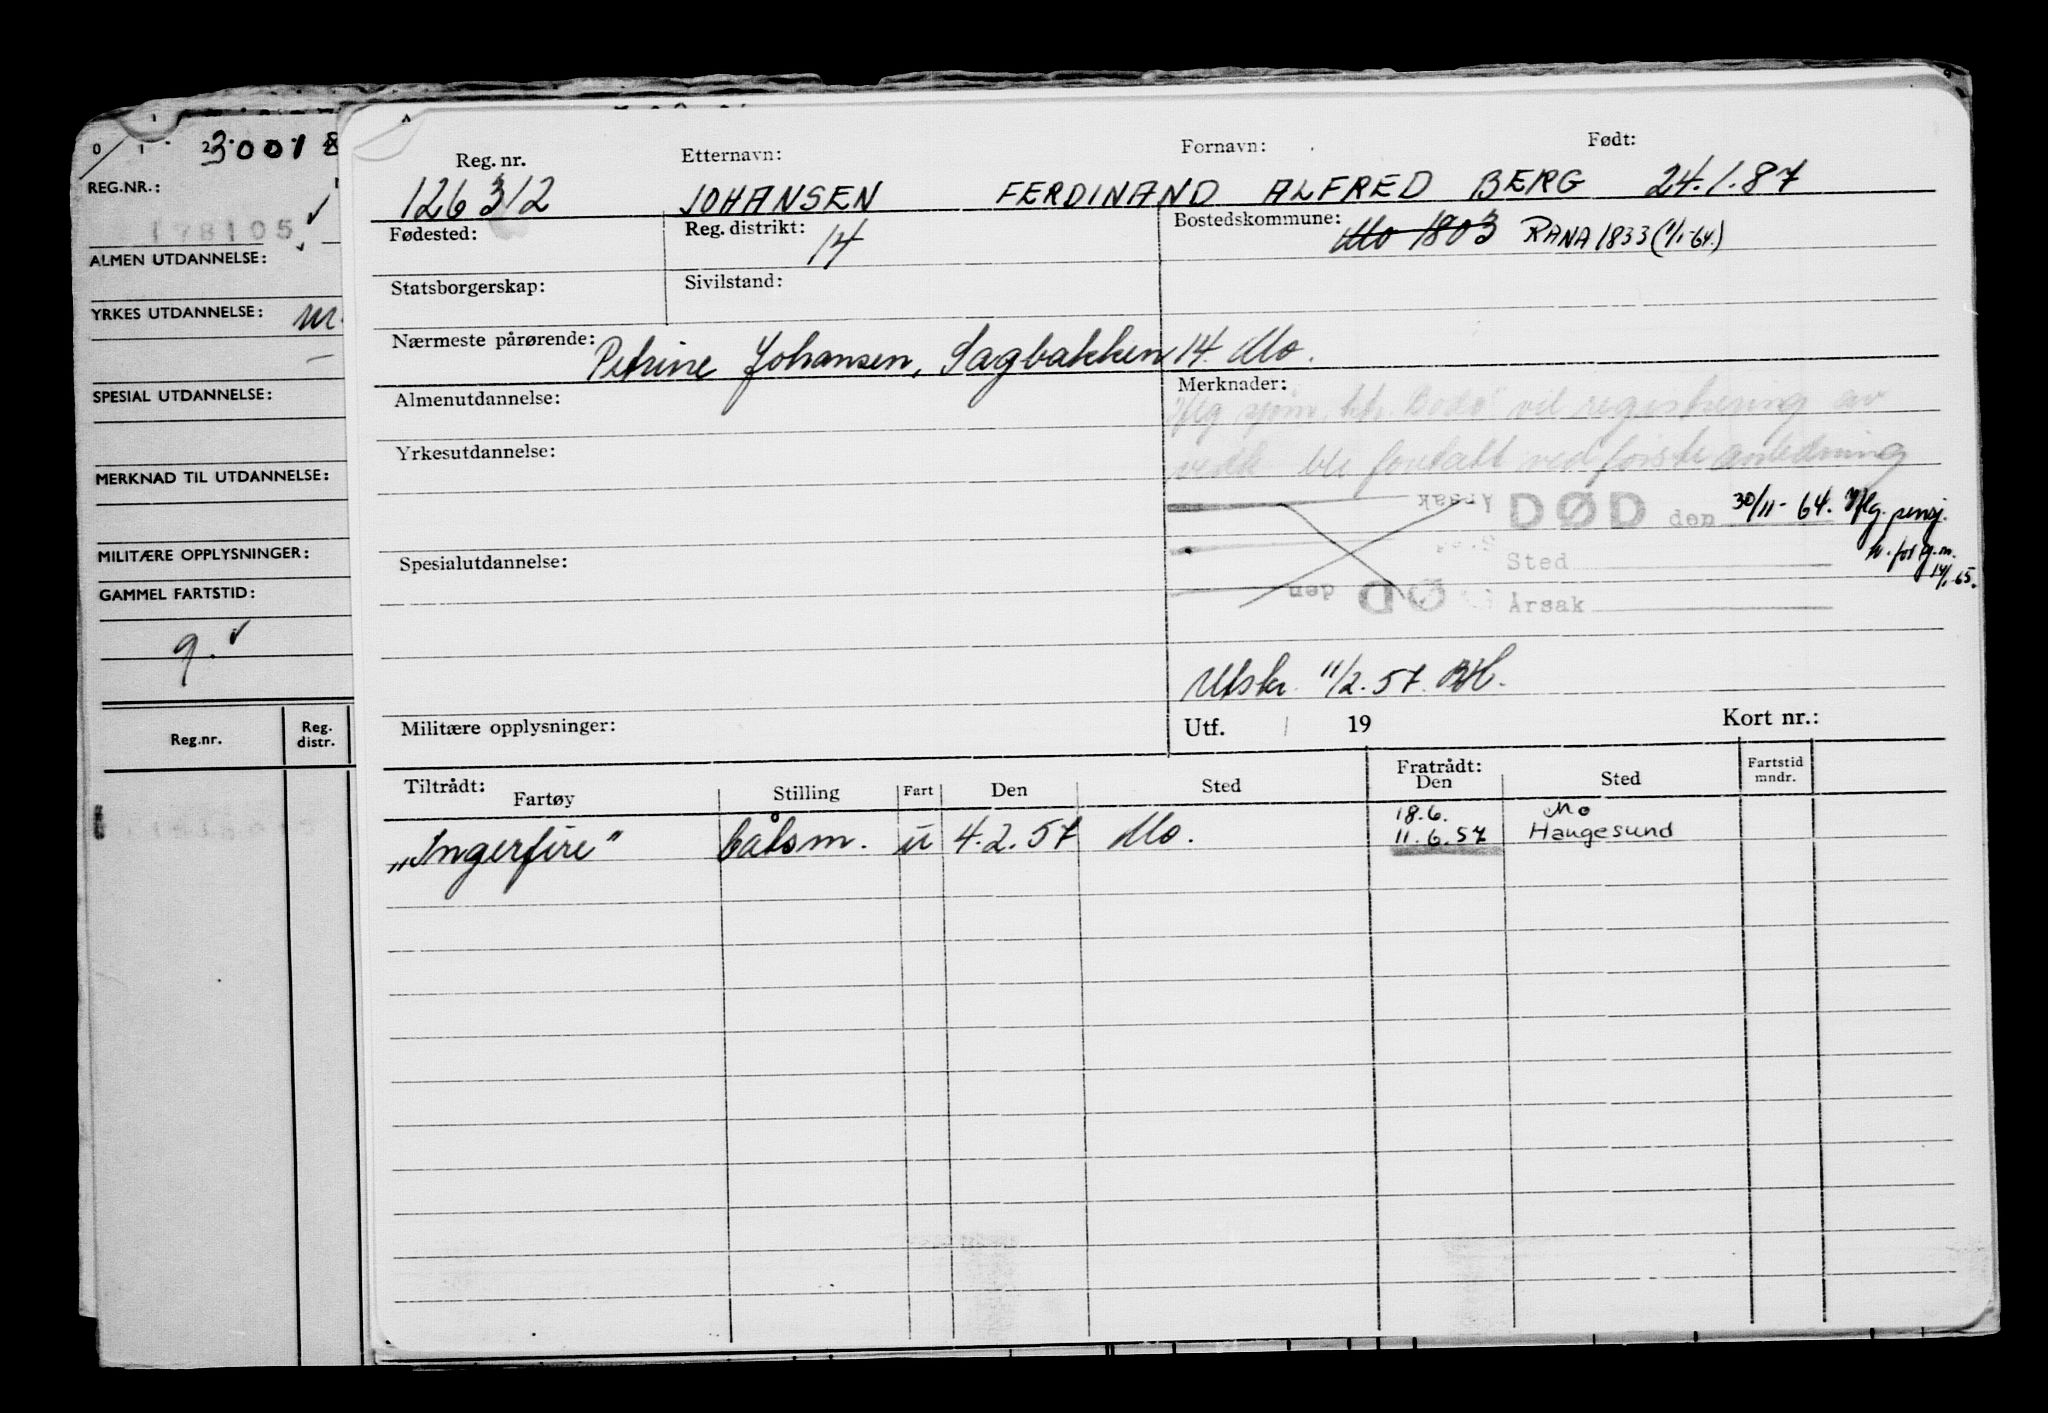 30018
REG.NR.:
178105
ALMEN UTDANNELSE:
YRKES UTDANNELSE: m.
SPESIAL UTDANNELSE:
MERKNAD TIL UTDANNELSE:
MILITÆRE OPPLYSNINGER:
GAMMEL FARTSTID:
9.
Reg.nr. Reg. distr.
Reg. nr. Etternavn: Fornavn: Født:
126312 JOHANSEN FERDINAND ALFRED BERG 24.1.87
Fødested: Reg. distrikt: 14 Bostedskommune: Mo 1803 RANA 1833 (1/1-64.)
Statsborgerskap: Sivilstand:
Nærmeste pårørende: Petrine Johansen, Sagbakken 14. Mo.
Almenutdannelse: Merknader:
Iflg sjøm. ktr. Bodø vil registrering av
Yrkesutdannelse:
vedk ble foretatt ved første anledning
Årsak DØD den 30/11-64. Iflg. pensj.
Sted
Spesialutdannelse:
tr. for sjm. 14/1-65.
Sted
DØD den
Årsak
Utskr. 11/2.57.
Militære opplysninger: Utf. / 19 Kort nr.:
Tiltrådt: Fratrådt: Fartstid mndr.
Fartøy Stilling Fart Den Sted Den Sted
18.6. Mo
"Ingerfire" båtsm. u 4.2.57 Mo. 11.6.57 Haugesund